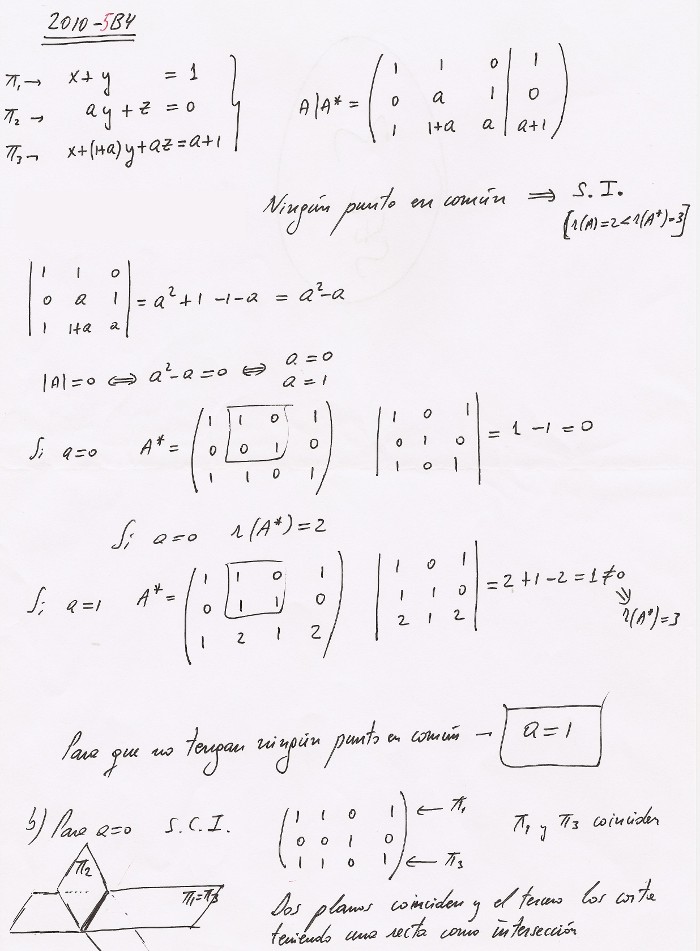 2010-5B4
π₁→ x+y = 1
π₂→ ay+z = 0
π₃→ x+(1+a)y+az=a+1
A|A* = ( 1 1 0 | 1
0 a 1 | 0
1 1+a a | a+1 )
Ningún punto en común ⇒ S.I.
[r(A)=2<r(A*)=3]
| 1 1 0 |
| 0 a 1 | = a²+1-1-a = a²-a
| 1 1+a a |
|A|=0 ⇔ a²-a=0 ⇔ a=0
a=1
Si a=0 A* = ( 1 1 0 1
0 0 1 0
1 1 0 1 )
| 1 0 1 |
| 0 1 0 | = 1-1=0
| 1 0 1 |
Si a=0 r(A*)=2
Si a=1 A* = ( 1 1 0 1
0 1 1 0
1 2 1 2 )
| 1 0 1 |
| 1 1 0 | = 2+1-2=1≠0
| 2 1 2 |
⇘ r(A*)=3
Para que no tengan ningún punto en común → a=1
b) Para a=0 S.C.I.
( 1 1 0 1 ) ← π₁
( 0 0 1 0 )
( 1 1 0 1 ) ← π₃
π₁ y π₃ coinciden
π₂
π₁=π₃
Dos planos coinciden y el tercero los corta
teniendo una recta como intersección